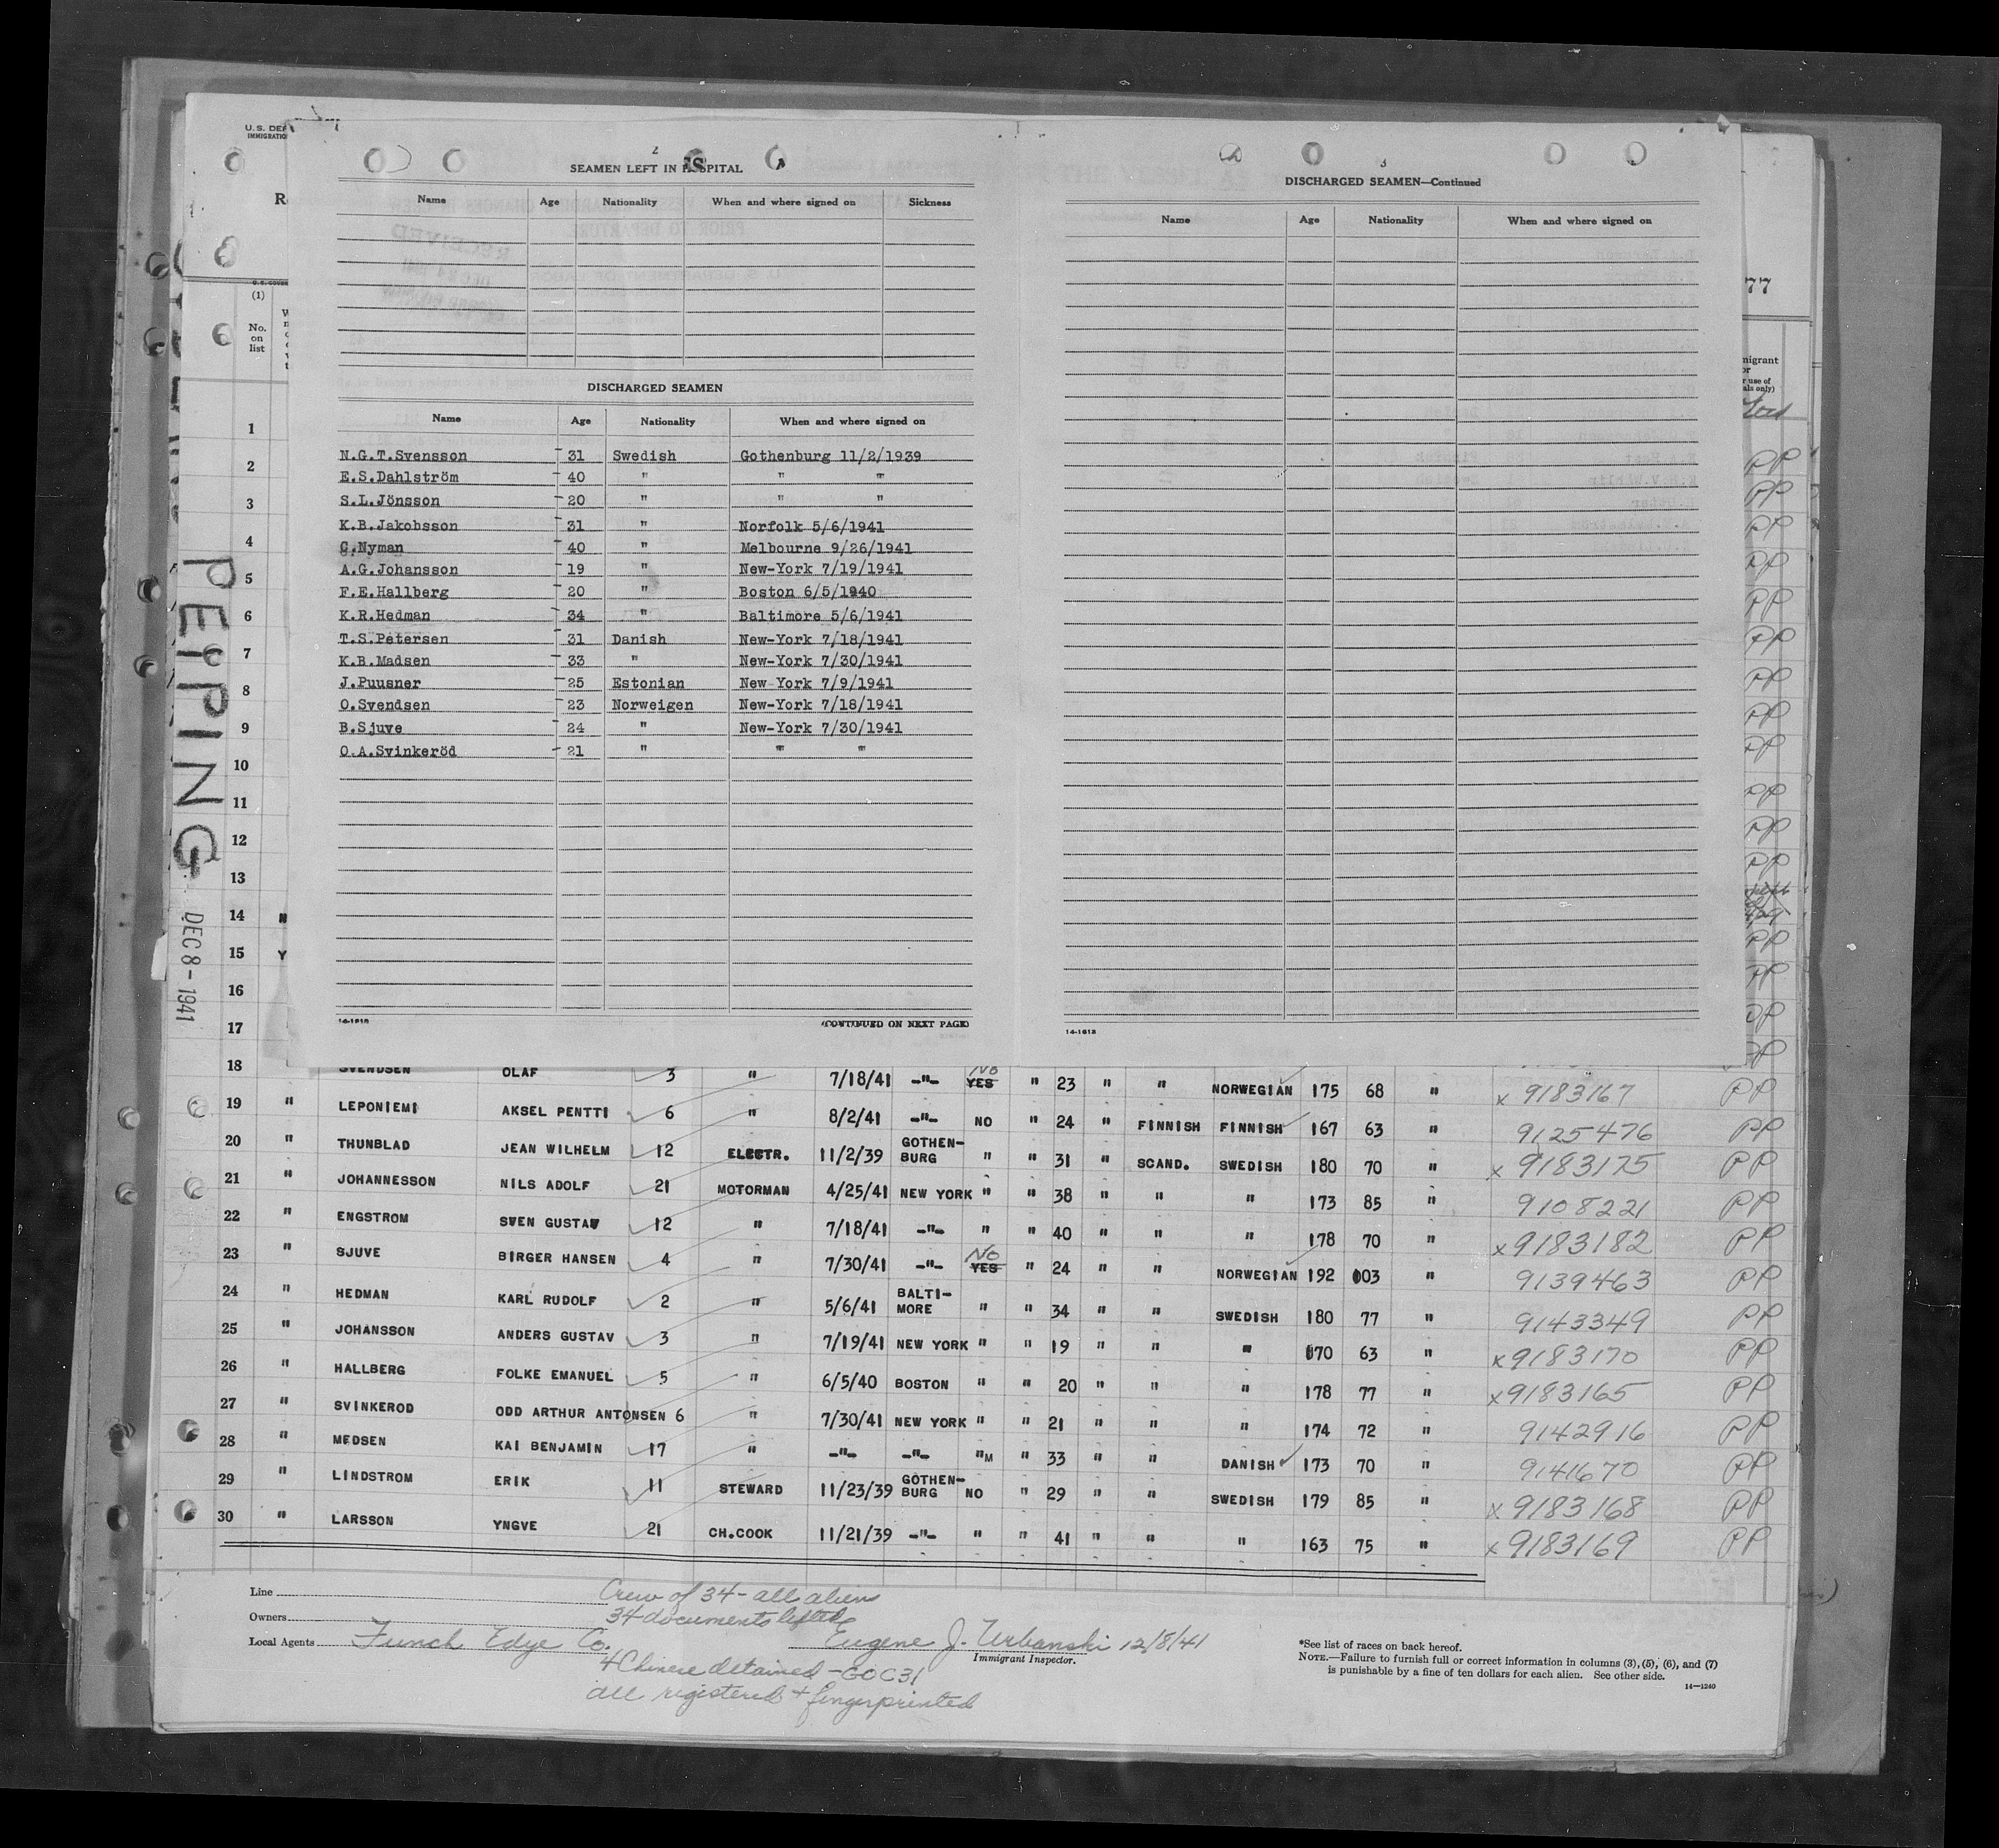 U.S. DEP
IMMIGRATIO
2
SEAMEN LEFT IN HOSPITAL
Name Age Nationality When and where signed on Sickness
DISCHARGED SEAMEN
Name Age Nationality When and where signed on
N.G.T.Svensson 31 Swedish Gothenburg 11/2/1939
E.S.Dahlström 40 " " "
S.L.Jönsson 20 " " "
K.B.Jakobsson 31 " Norfolk 5/6/1941
C.Nyman 40 " Melbourne 9/26/1941
A.G.Johansson 19 " New-York 7/19/1941
F.E.Hallberg 20 " Boston 6/5/1940
K.R.Hedman 34 " Baltimore 5/6/1941
T.S.Petersen 31 Danish New-York 7/18/1941
K.B.Madsen 33 " New-York 7/30/1941
J.Puusner 25 Estonian New-York 7/9/1941
O.Svendsen 23 Norweigen New-York 7/18/1941
B.Sjuve 24 " New-York 7/30/1941
O.A.Svinkeröd 21 " " "
14-1618 (CONTINUED ON NEXT PAGE)
3
DISCHARGED SEAMEN—Continued
Name Age Nationality When and where signed on
14-1618
77
(1)
No.
on
list
1
2
3
4
5
6
7
8
9
10
11
12
13
14
15 Y
16
17
PEIPING
DEC 8-1941
18 SVENDSEN OLAF 3 " 7/18/41 -"- No YES " 23 " " NORWEGIAN 175 68 " x 9183167 PP
19 " LEPONIEMI AKSEL PENTTI 6 " 8/2/41 -"- NO " 24 " FINNISH FINNISH 167 63 " 9125476 PP
20 " THUNBLAD JEAN WILHELM 12 ELECTR. 11/2/39 GOTHEN-BURG " " 31 " SCAND. SWEDISH 180 70 " x 9183175 PP
21 " JOHANNESSON NILS ADOLF 21 MOTORMAN 4/25/41 NEW YORK " " 38 " " " 173 85 " 9108221 PP
22 " ENGSTROM SVEN GUSTAV 12 " 7/18/41 -"- " " 40 " " " 178 70 " x 9183182 PP
23 " SJUVE BIRGER HANSEN 4 " 7/30/41 -"- No YES " 24 " " NORWEGIAN 192 003 " 9139463 PP
24 " HEDMAN KARL RUDOLF 2 " 5/6/41 BALTI-MORE " " 34 " " SWEDISH 180 77 " 9143349 PP
25 " JOHANSSON ANDERS GUSTAV 3 " 7/19/41 NEW YORK " " 19 " " " 170 63 " x 9183170 PP
26 " HALLBERG FOLKE EMANUEL 5 " 6/5/40 BOSTON " " 20 " " " 178 77 " x 9183165 PP
27 " SVINKEROD ODD ARTHUR ANTONSEN 6 " 7/30/41 NEW YORK " " 21 " " " 174 72 " 9142916 PP
28 " MEDSEN KAI BENJAMIN 17 " -"- -"- "M " 33 " " DANISH 173 70 " 9141670 PP
29 " LINDSTROM ERIK 11 STEWARD 11/23/39 GOTHEN-BURG NO " 29 " " SWEDISH 179 85 " x 9183168 PP
30 " LARSSON YNGVE 21 CH.COOK 11/21/39 -"- " " 41 " " " 163 75 " x 9183169 PP
Line
Crew of 34 - all aliens
Owners
34 documents lifted
Local Agents Funch Edye Co.
Eugene J. Urbanski 12/8/41
Immigrant Inspector.
4 Chinese detained - GOC31
all registered + fingerprinted
*See list of races on back hereof.
NOTE.—Failure to furnish full or correct information in columns (3), (5), (6), and (7)
is punishable by a fine of ten dollars for each alien. See other side.
14—1240